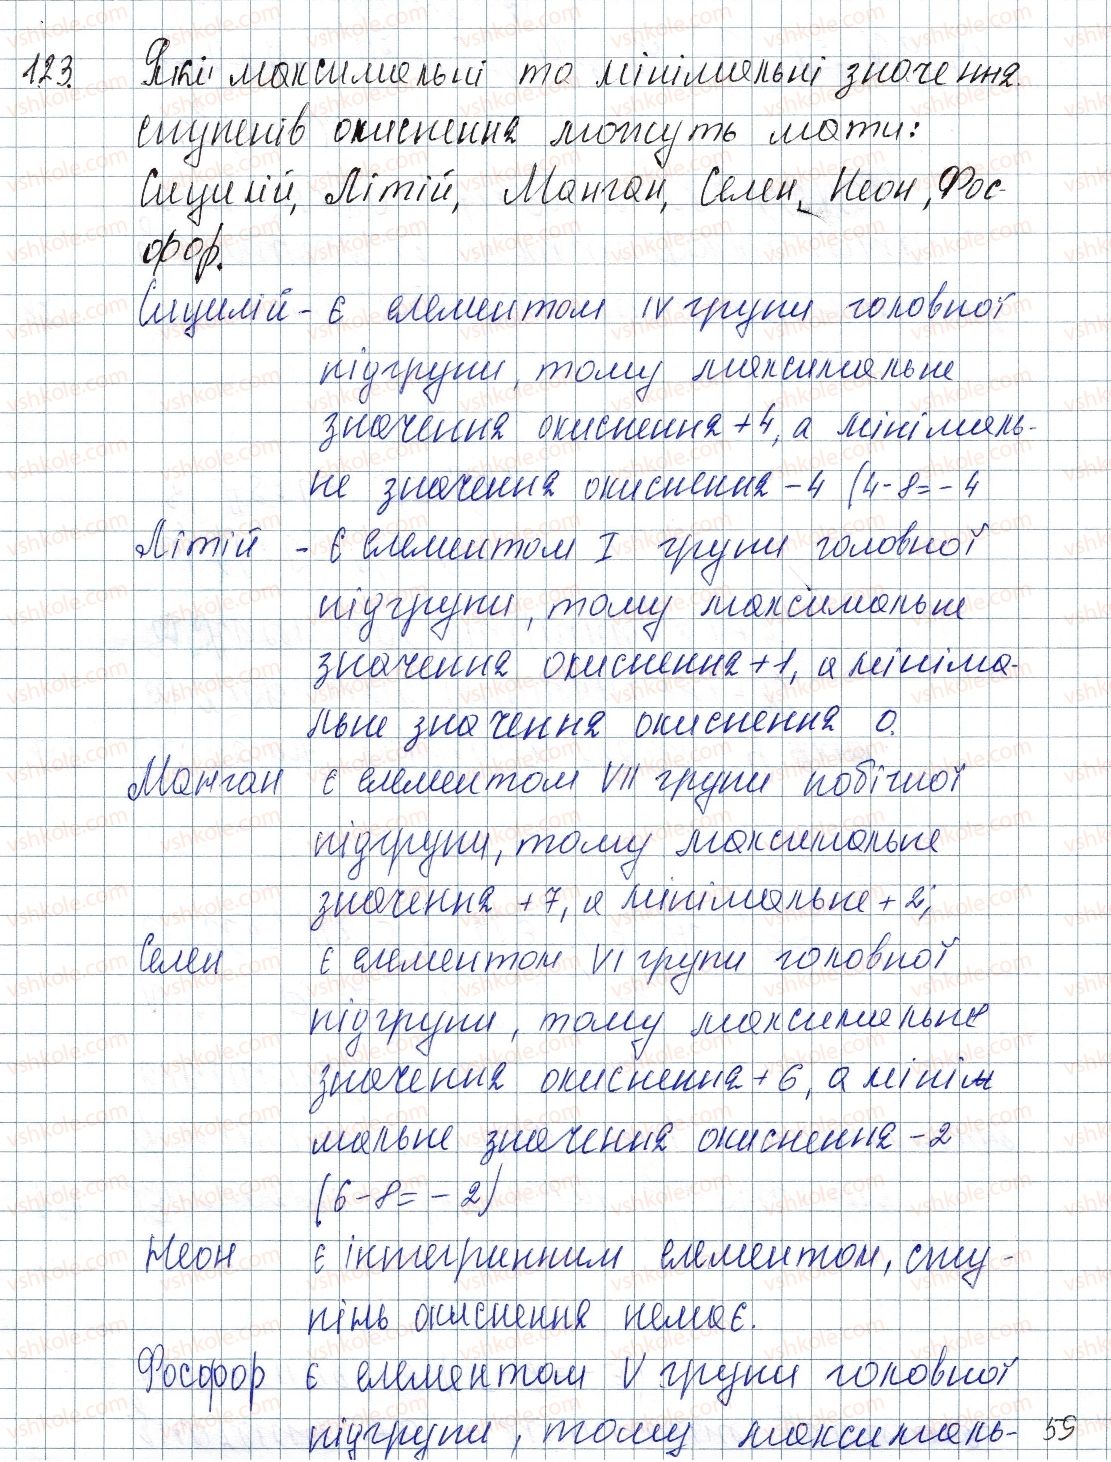 123. Які максимальні та мінімальні значення
ступенів окиснення можуть мати:
Силицій, Літій, Манган, Селен, Неон, Фос-
фор.
Силицій - є елементом IV групи головної
підгрупи, тому максимальне
значення окиснення +4, а мінімаль-
не значення окиснення -4 (4-8=-4
Літій - є елементом I групи головної
підгрупи, тому максимальне
значення окиснення +1, а мініма-
льне значення окиснення 0.
Манган є елементом VII групи побічної
підгрупи, тому максимальне
значення +7, а мінімальне +2;
Селен є елементом VI групи головної
підгрупи, тому максимальне
значення окиснення +6, а міні
мальне значення окиснення -2
(6-8=-2)
Неон є елементом, сту-
пінь окиснення немає.
Фосфор є елементом V групи головної
підгрупи, тому максималь-
59
vshkole.com